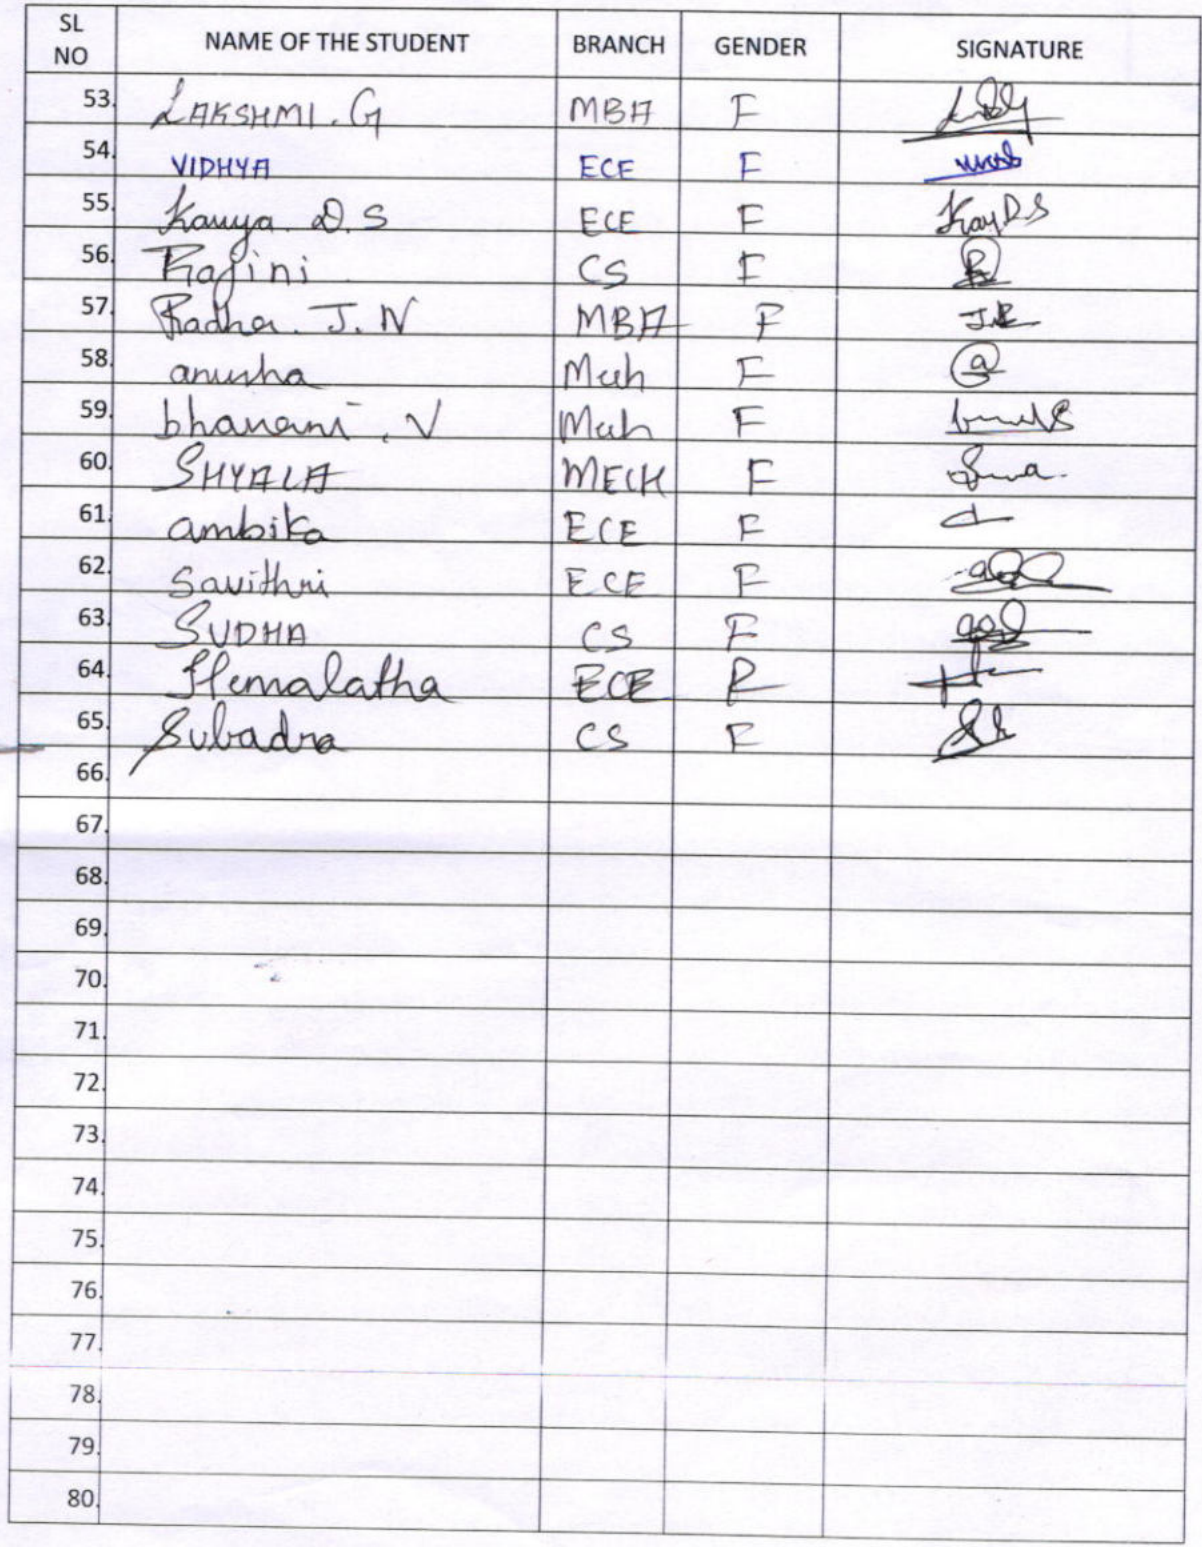 SL NO NAME OF THE STUDENT BRANCH GENDER SIGNATURE
53. LAKSHMI. G MBA F
54. VIDHYA ECE F
55. Kavya. D. S ECE F Kay D.S
56. Rajini CS F
57. Radha. J. N MBA F J.R
58. anusha Mech F a
59. bhavani. V Mech F
60. SHYALA MECH F
61. ambika ECE F
62. Savithri ECE F
63. SUDHA CS F
64. Hemalatha ECE F
65. Subadra CS F
66.
67.
68.
69.
70.
71.
72.
73.
74.
75.
76.
77.
78.
79.
80.